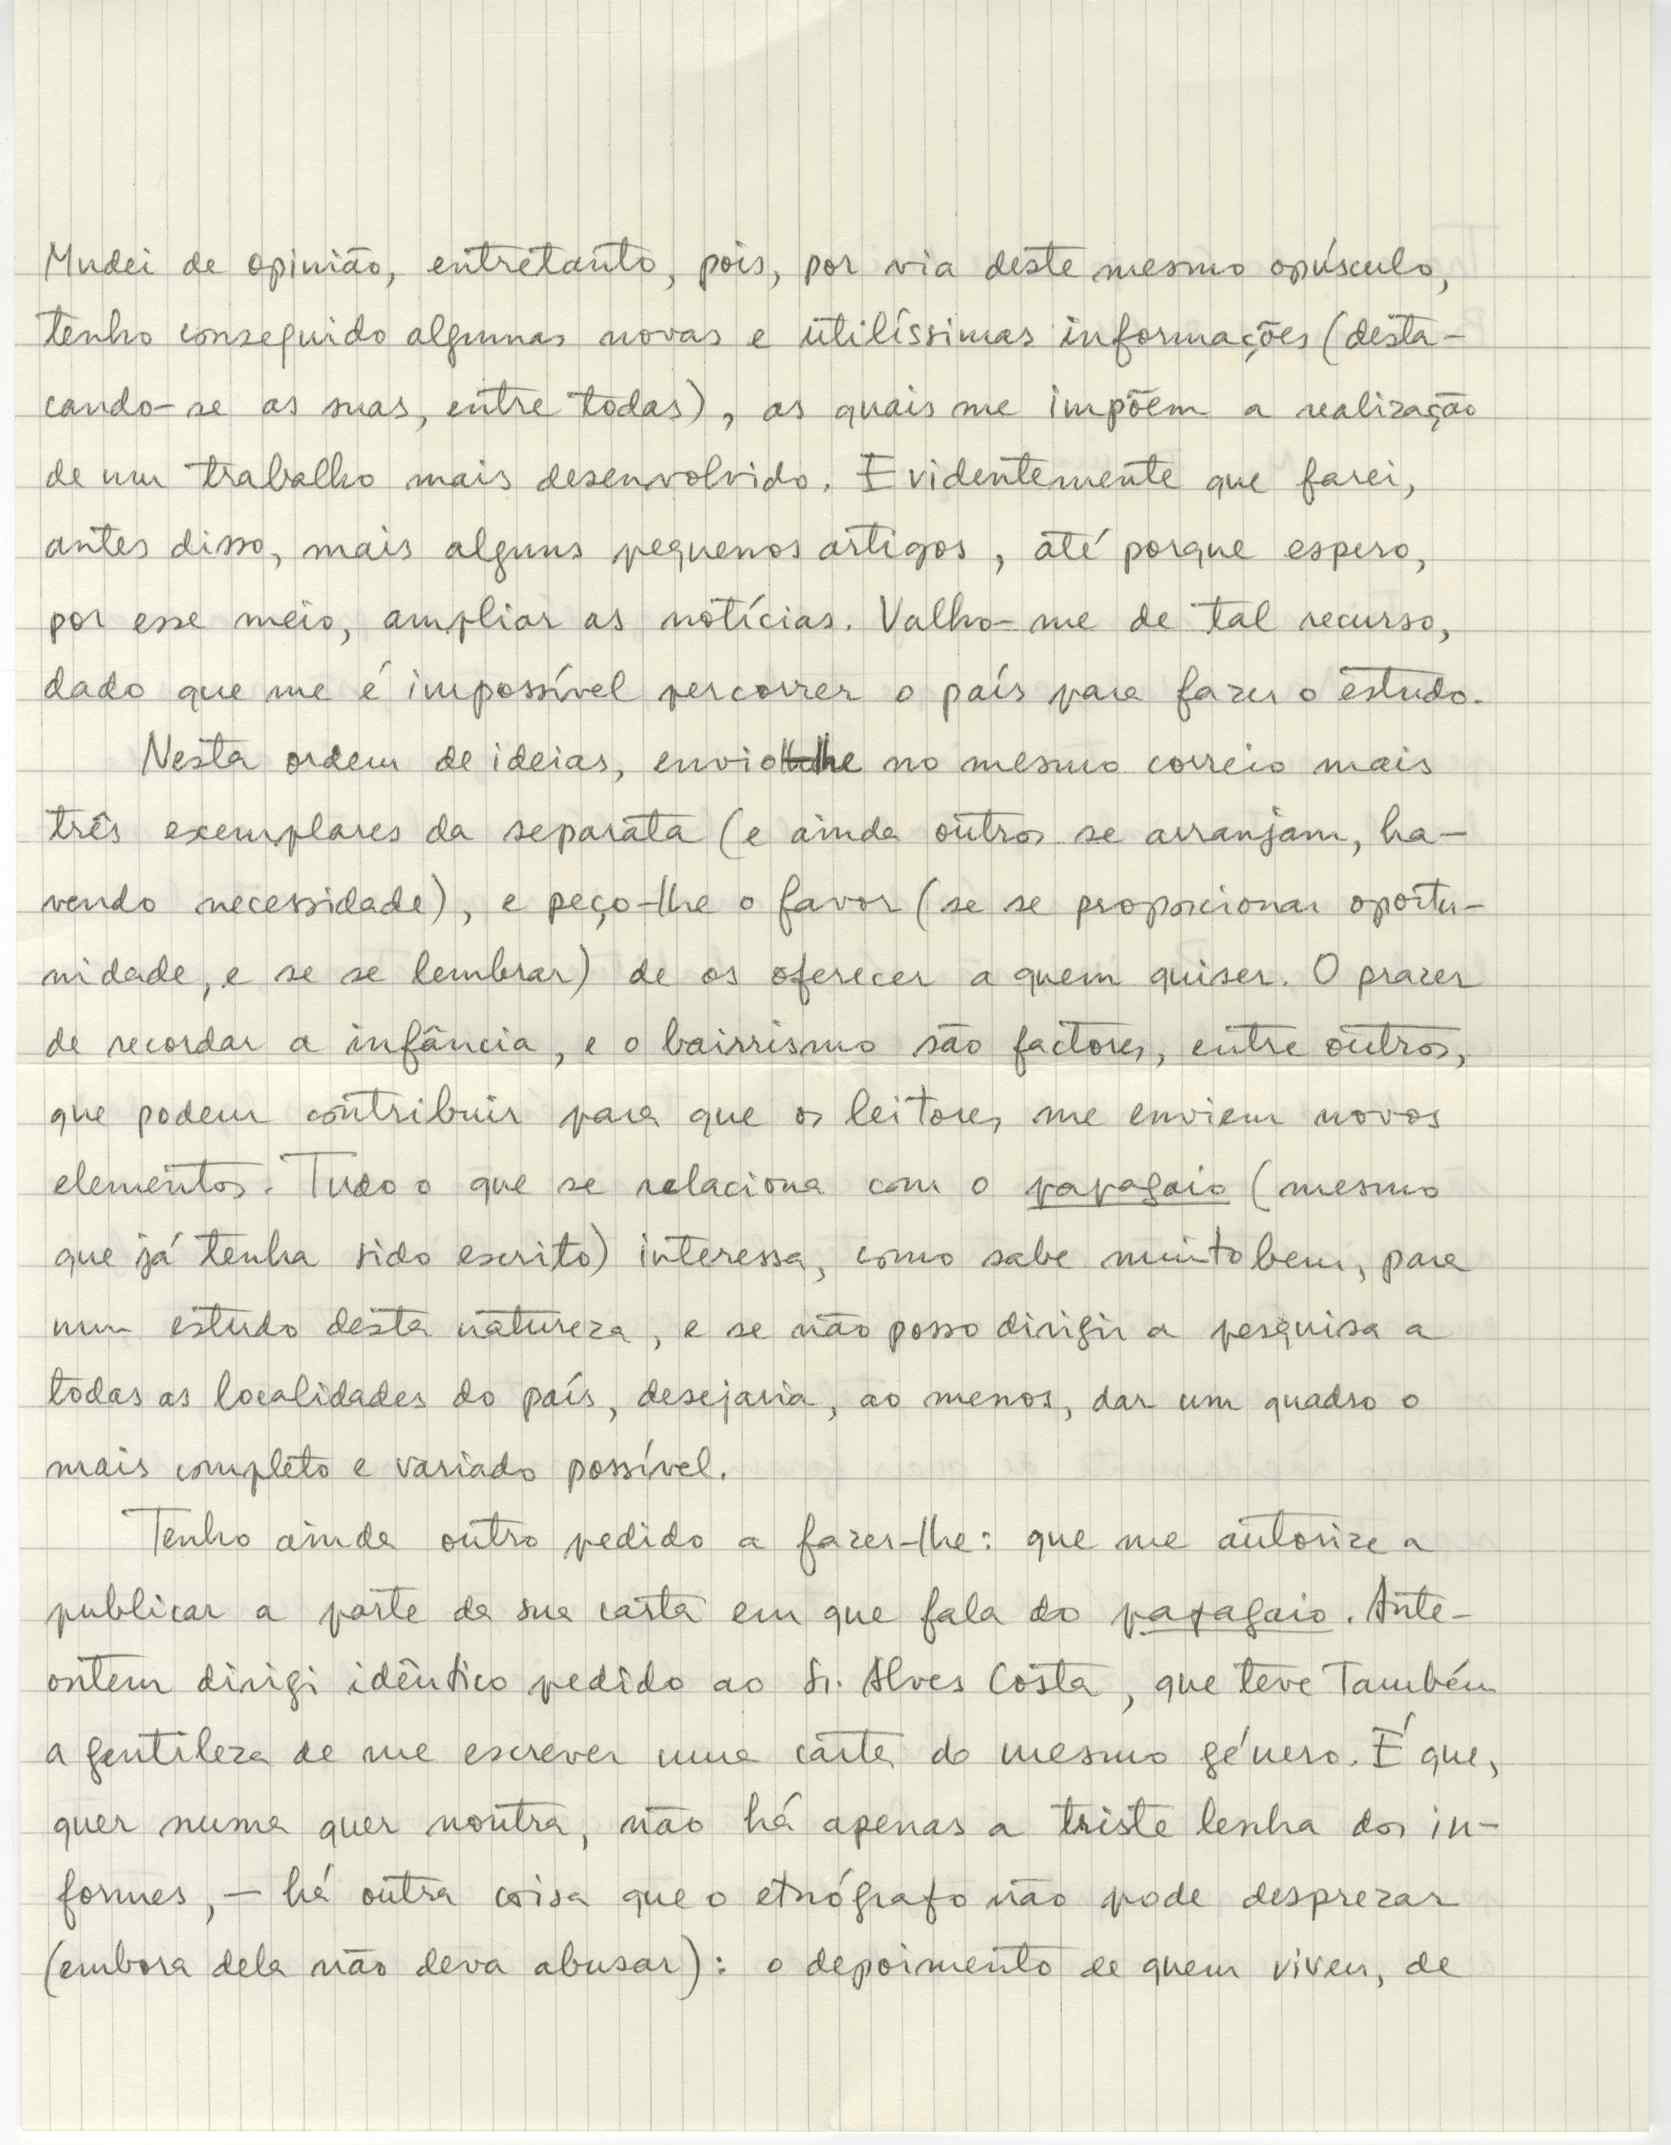 Mudei de opinião, entretanto, pois, por via deste mesmo opúsculo,
tenho conseguido algumas novas e utilíssimas informações (desta-
cando-se as suas, entre todas), as quais me impõem a realização
de um trabalho mais desenvolvido. Evidentemente que farei,
antes disso, mais alguns pequenos artigos, até porque espero,
por esse meio, ampliar as notícias. Valho-me de tal recurso,
dado que me é impossível percorrer o país para fazer o estudo.
Nesta ordem de ideias, envio-lhe no mesmo correio mais
três exemplares da separata (e ainda outros se arranjam, ha-
vendo necessidade), e peço-lhe o favor (se se proporcionar oportu-
nidade, e se se lembrar) de os oferecer a quem quiser. O prazer
de recordar a infância, e o bairrismo são factores, entre outros,
que podem contribuir para que os leitores me enviem novos
elementos. Tudo o que se relaciona com o papagaio (mesmo
que já tenha sido escrito) interessa, como sabe muito bem, para
um estudo desta natureza, e se não posso dirigir a pesquisa a
todas as localidades do país, desejaria, ao menos, dar um quadro o
mais completo e variado possível.
Tenho ainda outro pedido a fazer-lhe: que me autorize a
publicar a parte da sua carta em que fala do papagaio. Ante-
ontem dirigi idêntico pedido ao Sr. Alves Costa, que teve também
a gentileza de me escrever uma carta do mesmo género. É que,
quer numa quer noutra, não há apenas a triste lenha dos in-
formes, – há outra coisa que o etnógrafo não pode desprezar
(embora dela não deva abusar): o depoimento de quem viveu, de